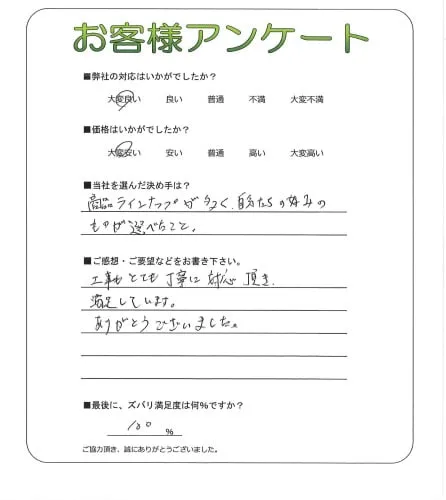 お客様アンケート
■弊社の対応はいかがでしたか？
大変良い 良い 普通 不満 大変不満
■価格はいかがでしたか？
大変安い 安い 普通 高い 大変高い
■当社を選んだ決め手は？
商品ラインナップが多く、自分たちの好みの
ものが選べたこと。
■ご感想・ご要望などをお書き下さい。
工事もとても丁寧に対応頂き、
満足しています。
ありがとうございました。
■最後に、ズバリ満足度は何%ですか？
100 %
ご協力頂き、誠にありがとうございました。